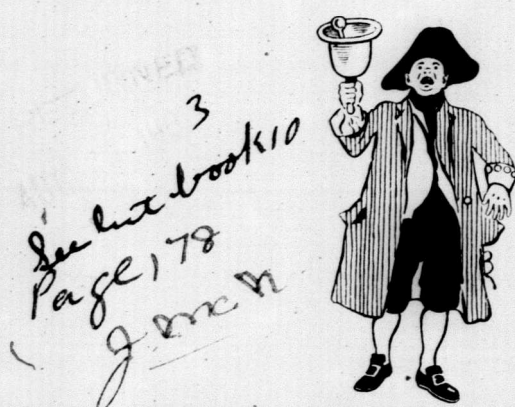 3
See hut book 10
Page 178
J McN